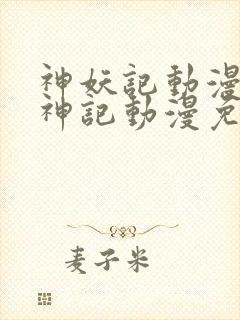 神妖記動漫
神記動漫免
麦子米